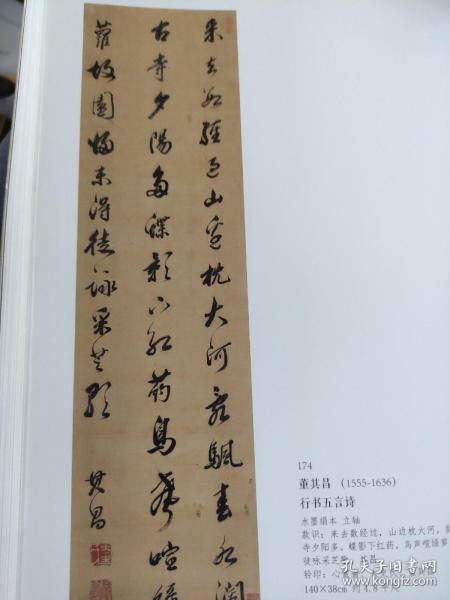 來去數經過山邊枕大河亂颿春水闊
古寺夕陽多蝶影下紅葯鳥聲喧緑
蘿故園歸未得徒詠采芝歌
其昌
174
董其昌 (1555-1636)
行书五言诗
水墨绢本 立轴
款识：来去数经过，山边枕大河，
寺夕阳多。蝶影下红药，鸟声喧绿萝
徒咏采芝歌。其昌
钤印：
140×38cm 约4.8平尺
孔夫子旧书网